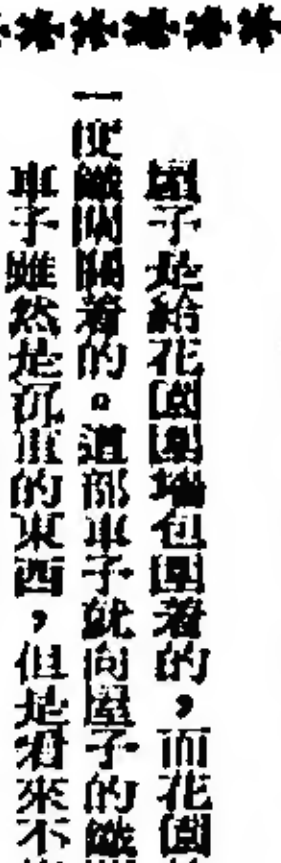 屋子是給花園圍墻包圍着的,而花園
一度鐵閘關着的。這部車子就向屋子的鐵
車子雖然是沉重的東西,但是看來不